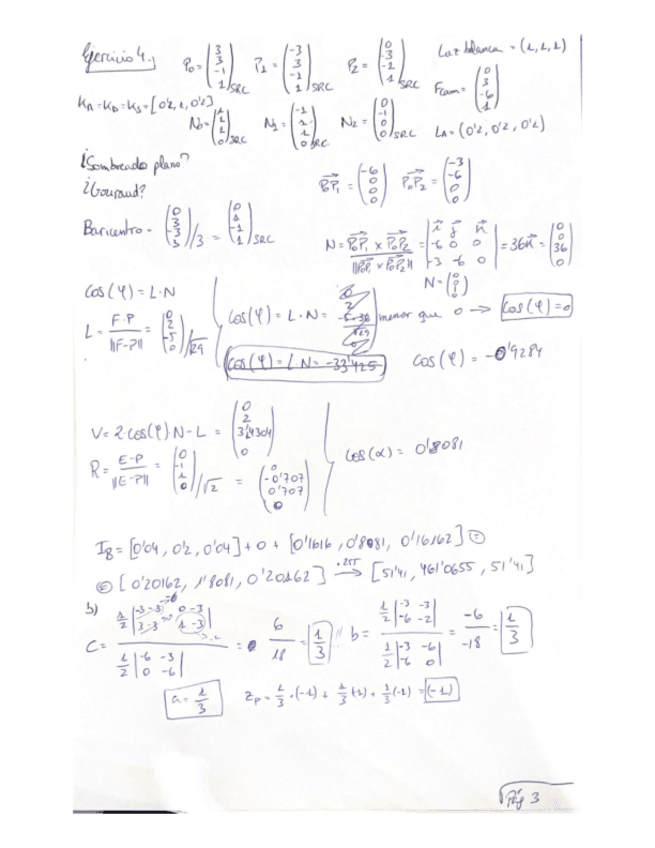 Ejercicio 4.
P₀ = (3 3 -1 1)SRC P₁ = (-3 3 -1 1)SRC P₂ = (0 -3 -1 1)SRC Luz blanca = (1,1,1)
KA = KD = KS = [0'2, 1, 0'2] Fcam = (0 3 -6 1)
N₀ = (1 1 1 0)SRC N₁ = (-1 1 1 0)SRC N₂ = (0 -1 0 0)SRC LA = (0'2, 0'2, 0'2)
¿Sombreado plano?
¿Gouraud?
P₀P₁ = (-6 0 0 0) P₀P₂ = (-3 -6 0 0)
Baricentro = (0 3 -3 3)/3 = (0 1 -1 1)SRC
N = P₀P₁ x P₀P₂ / ||P₀P₁ x P₀P₂|| = |i j k -6 0 0 -3 -6 0| = 36k = (0 0 36 0)
N = (0 0 1 0)
Cos(φ) = L·N
L = F-P / ||F-P|| = (0 2 -5 0)/√29
Cos(φ) = L·N = menor que 0 → Cos(φ) = 0
Cos(φ) = L·N = -33'425
Cos(φ) = -0'9284
V = 2·cos(φ)·N-L = (0 2 0)
R = E-P / ||E-P|| = (0 -1 1 0)/√2 = (0 -0'707 0'707 0)
Cos(α) = 0'8081
I_B = [0'04, 0'2, 0'04] + 0 + [0'1616, 0'8081, 0'16162] =
= [0'20162, 1'8081, 0'20162] ·255 → [51'41, 461'0655, 51'41]
b)
C = ½|-3-3 0-3 3-3 1-3| / ½|-6 -3 0 -6| = 6/18 = 1/3 // b = ½|-3 -3 -6 -2| / ½|-3 -6 -6 0| = -6/-18 = 1/3
a = 1/3 Zp = 1/3·(-1) + 1/3(-1) + 1/3(-1) = (-1)
Pág 3